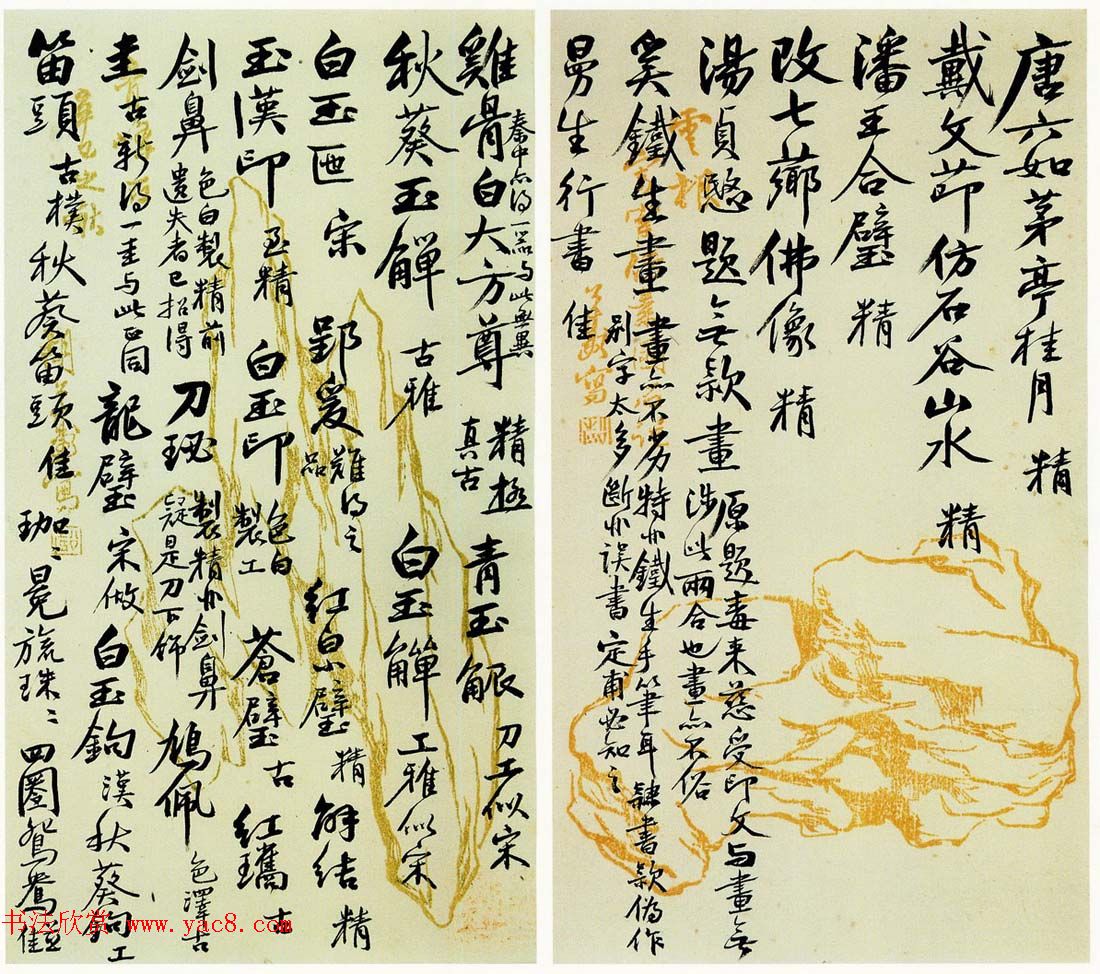 唐六如茅亭桂月 精
戴文節仿石谷山水 精
潘王合璧 精
改七薌佛像 精
湯貞愍題無款畫 原題壽来慈受印文与畫無
涉此兩合也畫亦不俗
奚鐵生畫 畫亦不劣特非鐵生手筆耳隸書款偽作
别字太多斷非誤書定甫必知之
曼生行書 佳
雞骨白大方尊 精極真古 青玉觶 刀工似宋
秦中亦得一器与此無異
秋葵玉觶 古雅 白玉觶 工雅似宋
白玉匜 宋 郢爰 難得之品 紅白小璧 精 觿結 精
玉漢印 至精 白玉印 色白製工 蒼璧 古 紅璊 古
劍鼻 色白製精前遺失者已招得 刀珌 製精非劍鼻疑是刀下飾 鳩佩 色澤古
圭 古新得一圭与此正同 龍璧 宋倣 白玉鉤 漢秋葵鉤 工
笛頭 古樸 秋葵笛頭 佳 珈 冕旒珠 四圈鴛鴦 佳
书法欣赏 www.yac8.com